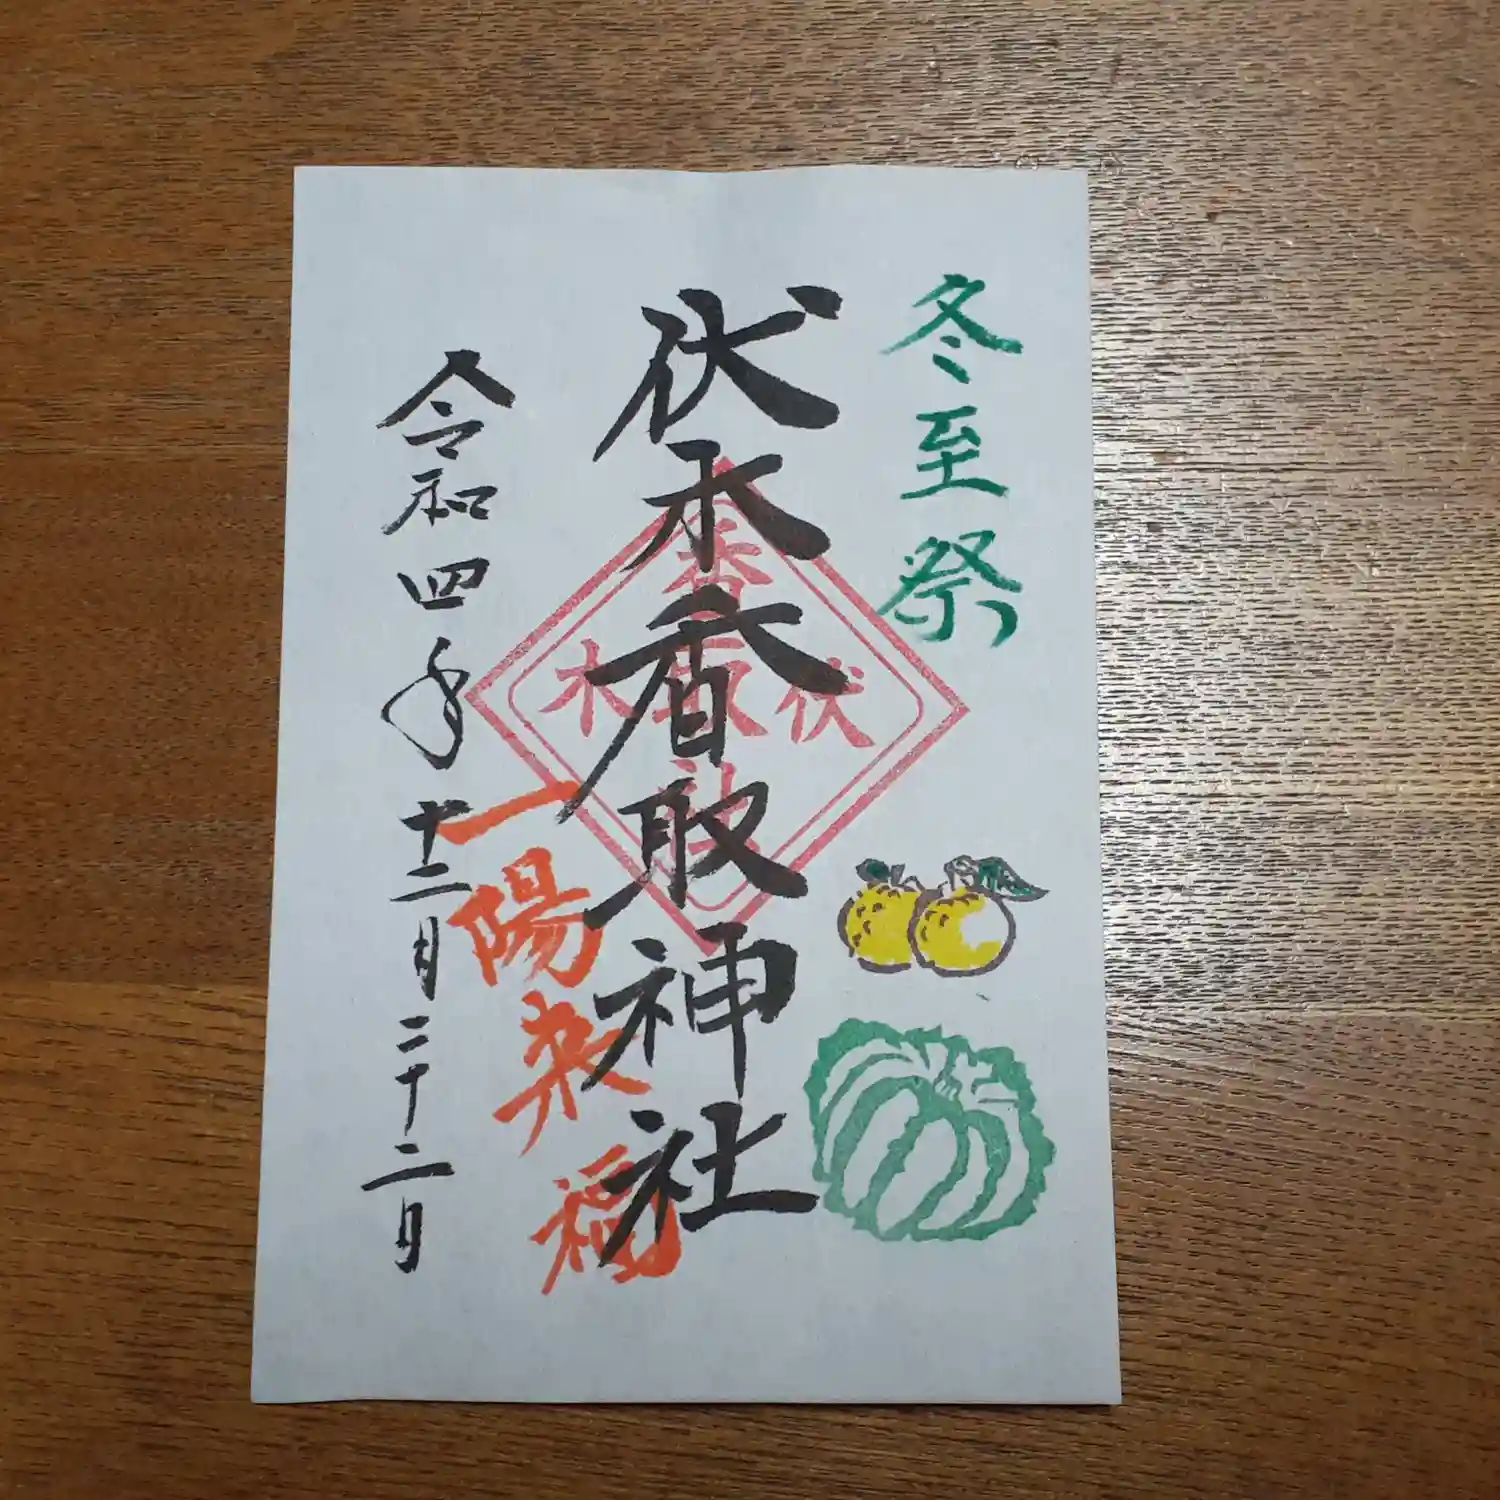 冬至祭
伏木香取神社
香取
伏木
一陽来福
令和四年十二月二十二日